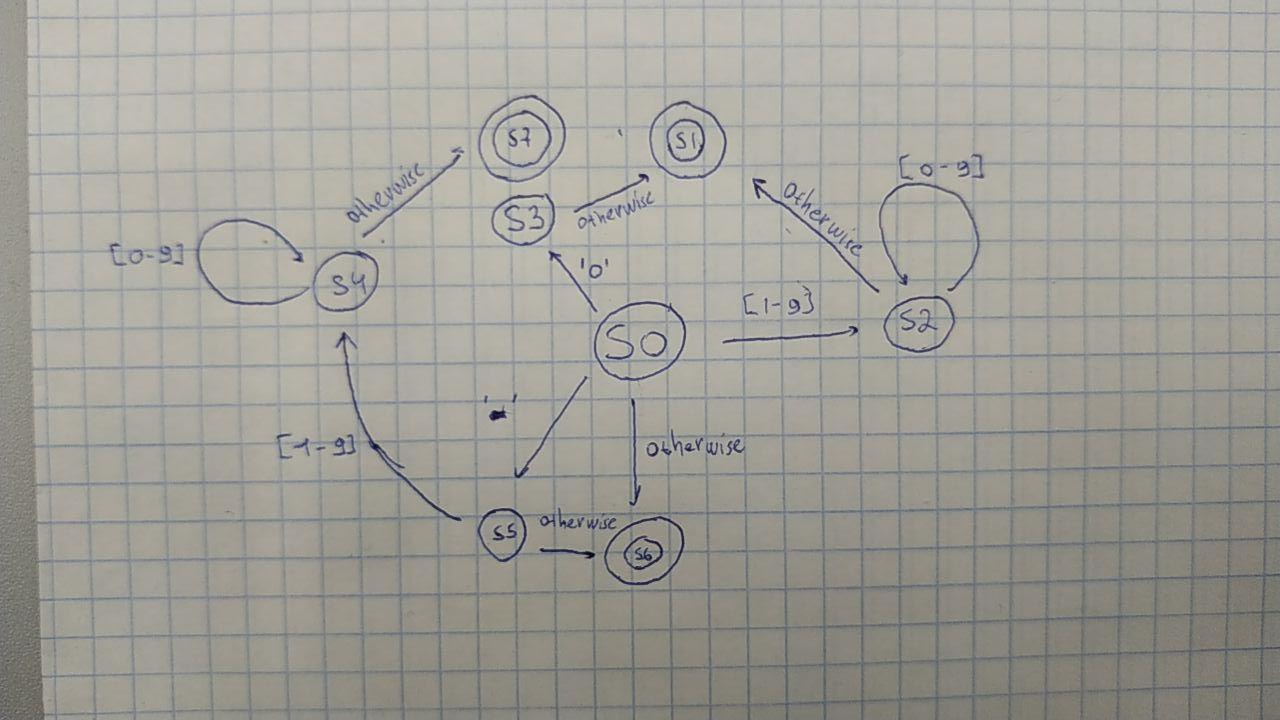 S7
S1
[0-9]
otherwise
otherwise
S3
otherwise
[0-9]
S4
'0'
[1-9]
S0
S2
'-'
[1-9]
otherwise
otherwise
S5
S6